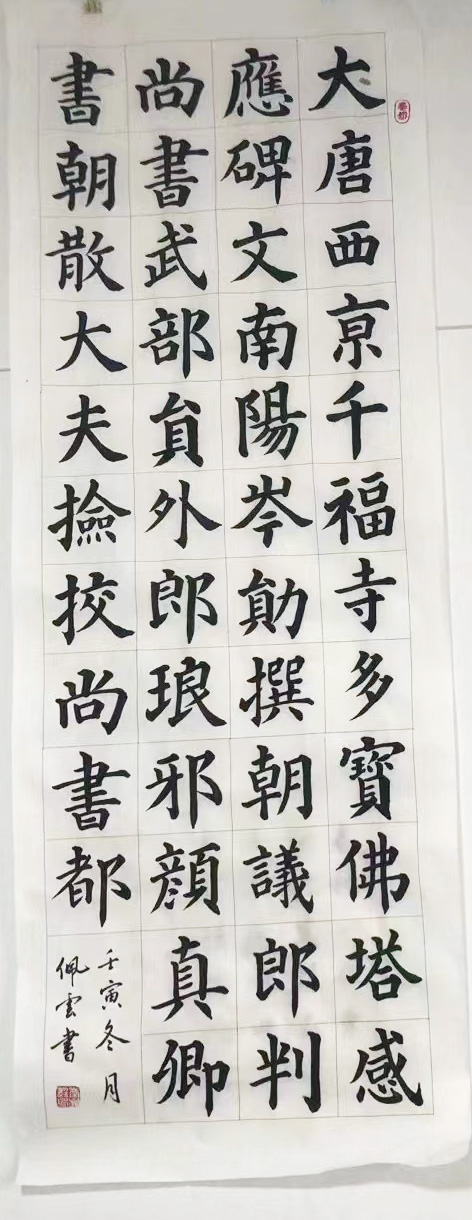 大唐西京千福寺多寶佛塔感
應碑文南陽岑勛撰朝議郎判
尚書武部員外郎琅邪顏真卿
書朝散大夫撿挍尚書都
壬寅冬月
佩雲書